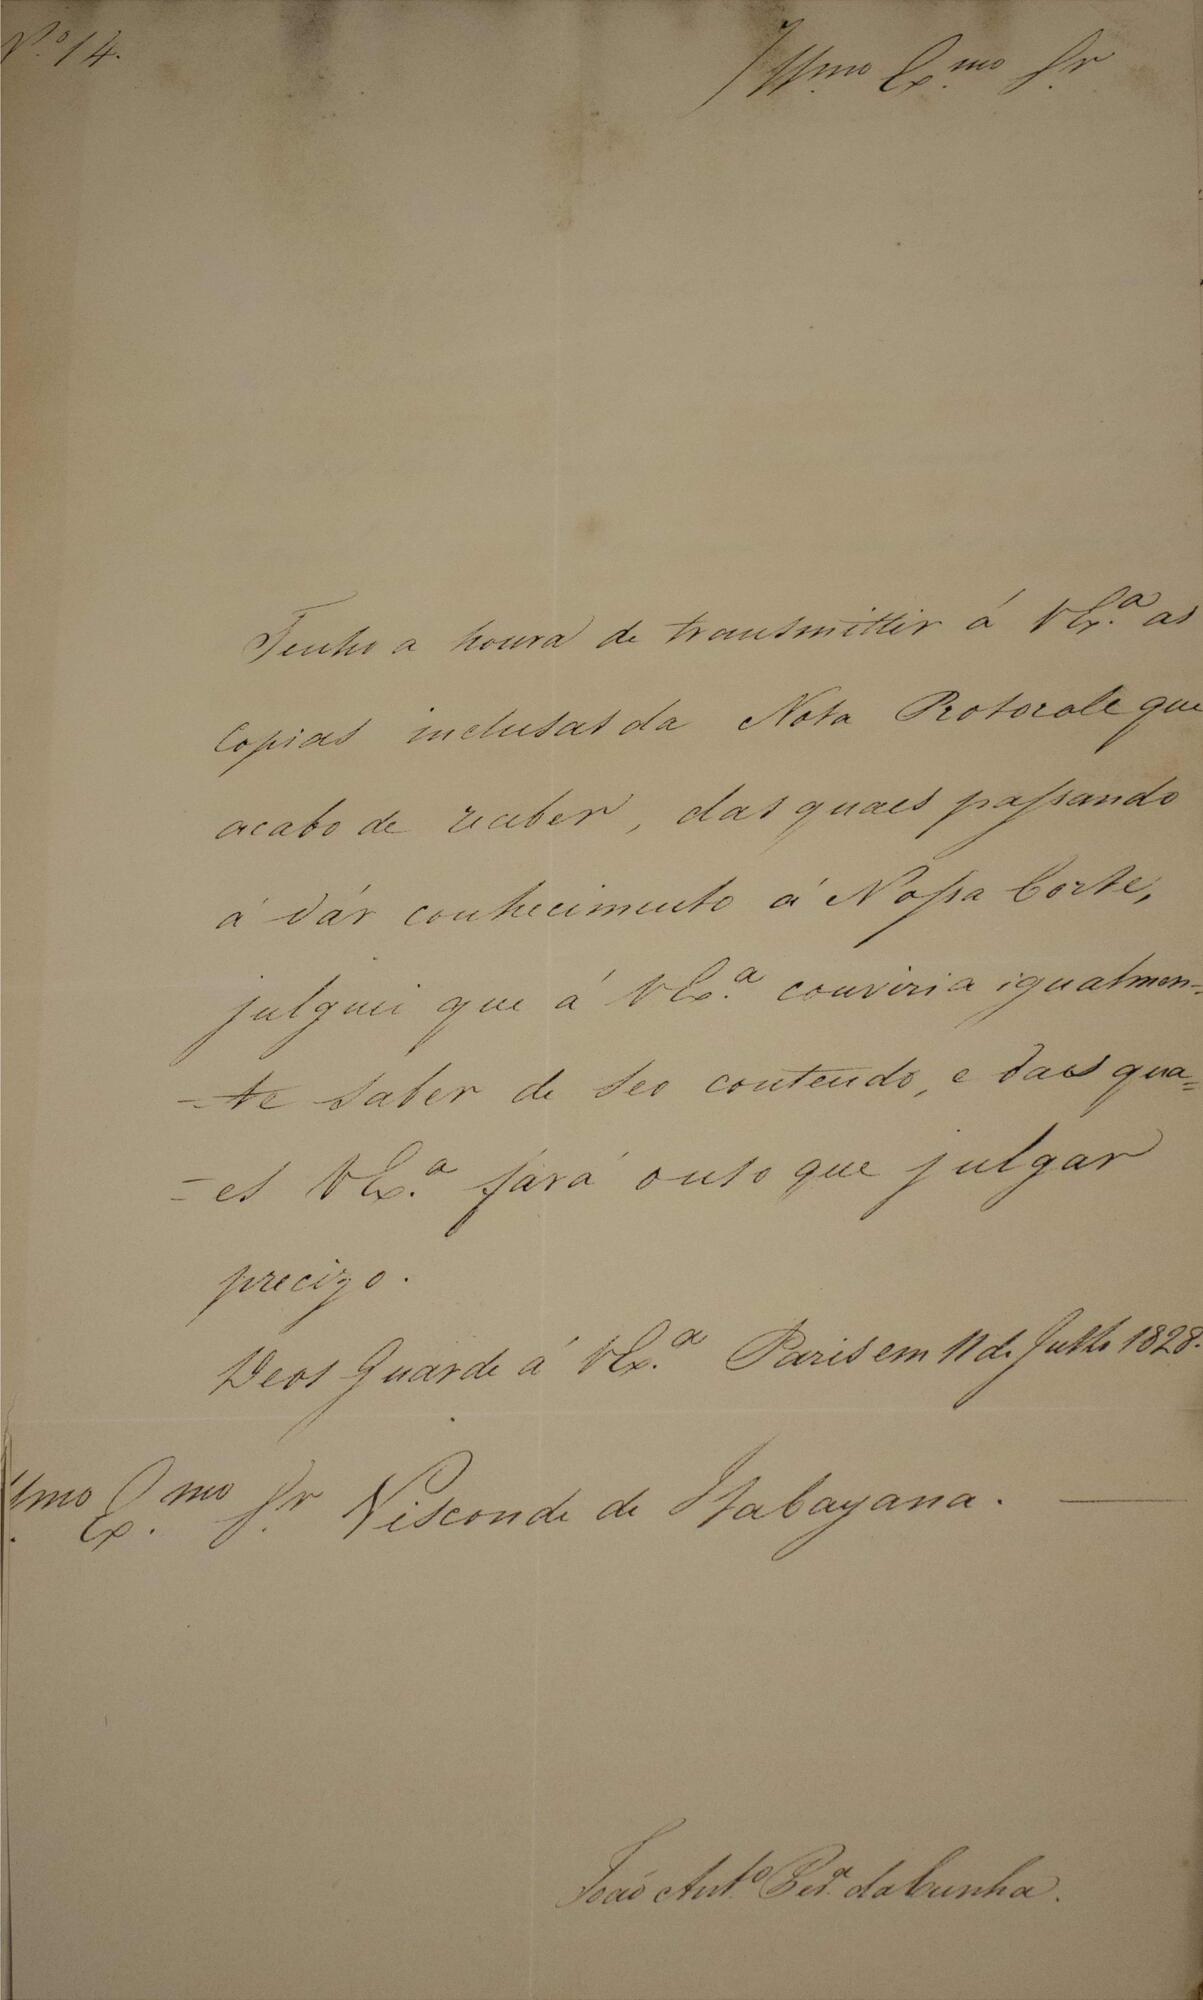 N.º 14.
Ill.mo Ex.mo Sr
Tenho a honra de transmittir á VEx.ª as
copias inclusas da Nota Protocole que
acabo de receber, das quaes passando
á dár conhecimento á Nossa Corte,
julguei que á VEx.ª conviria igualmen-
-te saber de seo conteudo, e das qua=
=es VEx.ª fará o uso que julgar
precizo.
Deos Guarde á VEx.ª Paris em 11 de Julho 1828.
Illmo Ex.mo Sr Visconde de Itabayana.
João Ant.º Per.ª da Cunha.